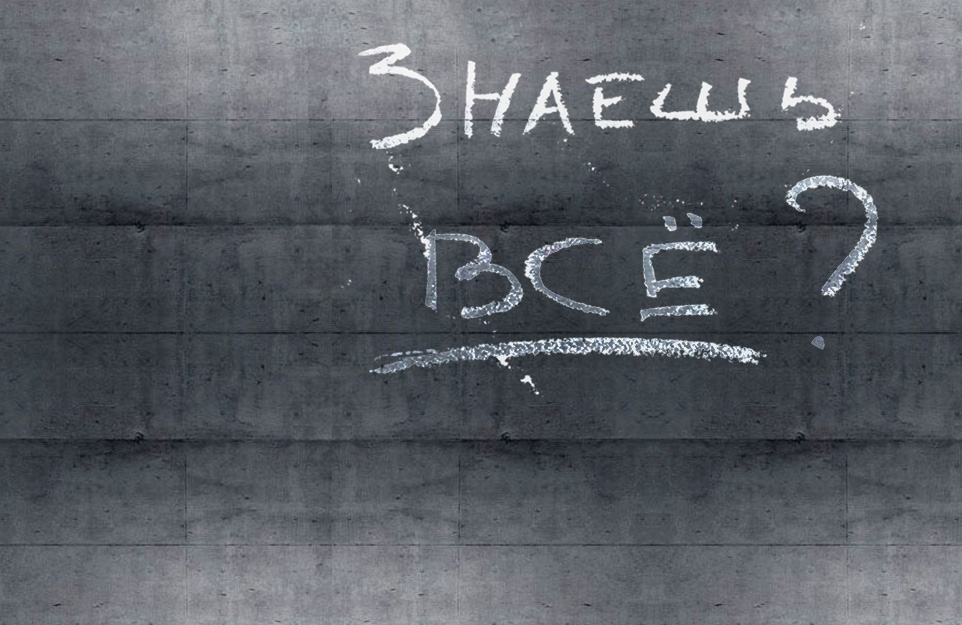 ЗНАЕШЬ
ВСЁ?